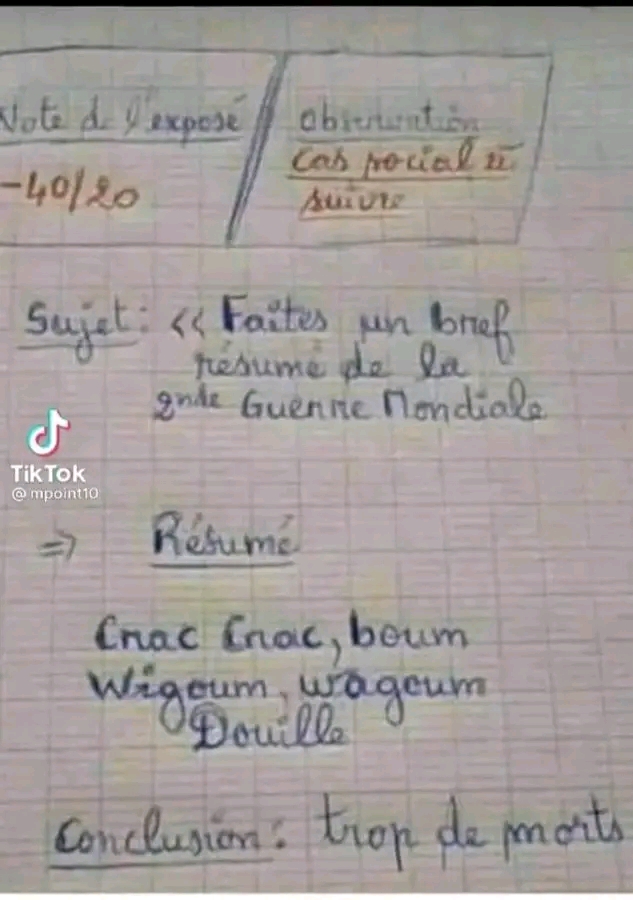 Note de l'exposé
-40/20
Observation
Cas social à
suivre
Sujet: << Faîtes un bref
résumé de la
2nde Guerre Mondiale
TikTok
@mpoint10
=> Résumé
Crac Crac, boum
Wigoum, wagoum
Douille
Conclusion: trop de morts